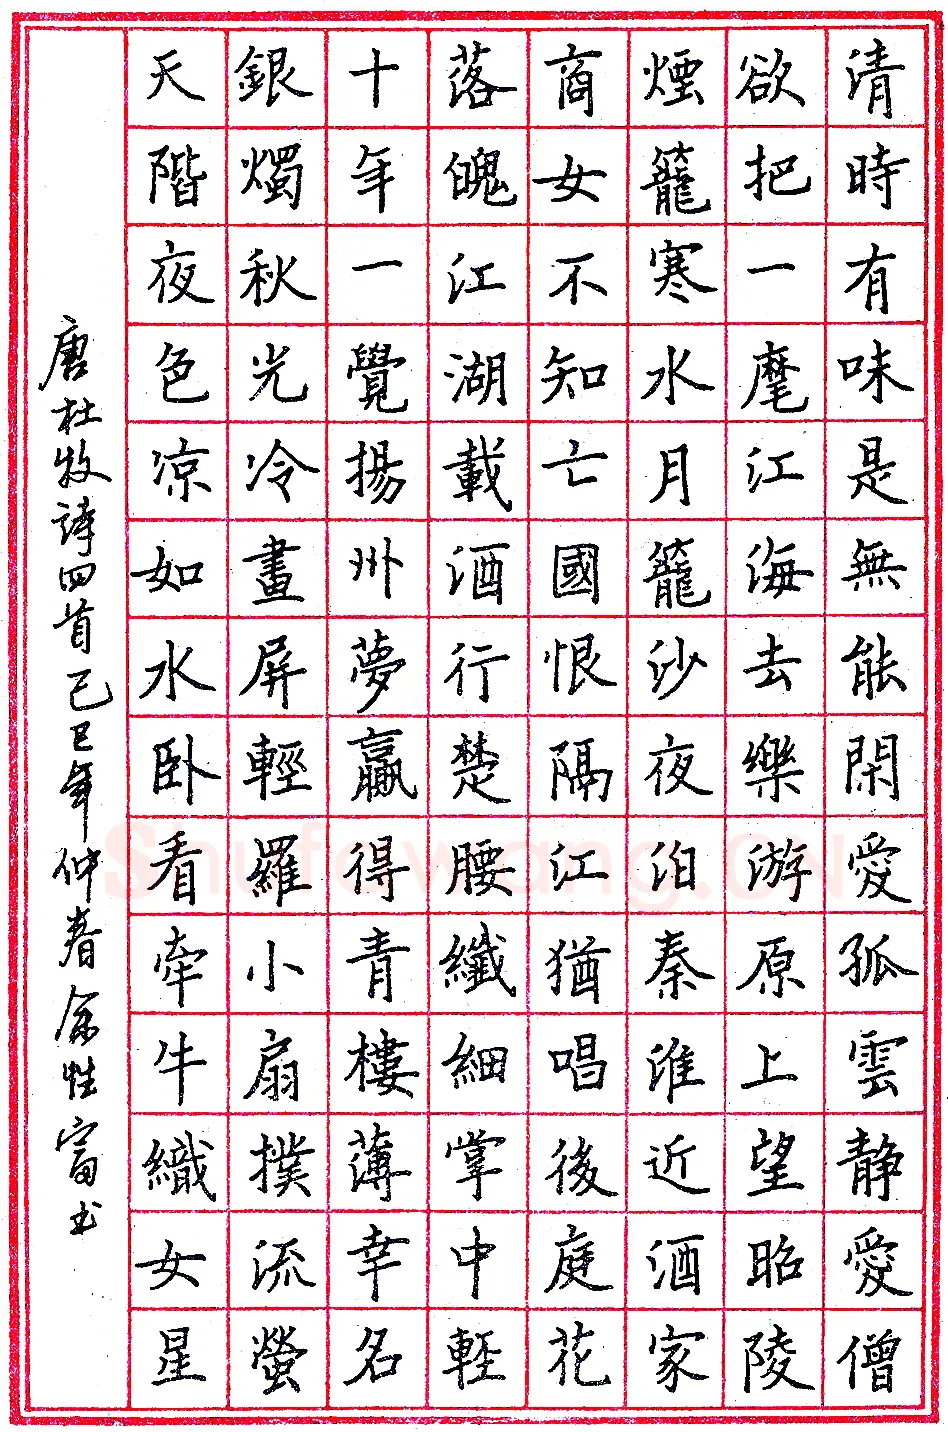 清時有味是無能閑愛孤雲静愛僧
欲把一麾江海去樂游原上望昭陵
煙籠寒水月籠沙夜泊秦淮近酒家
商女不知亡國恨隔江猶唱後庭花
落魄江湖載酒行楚腰纖細掌中輕
十年一覺揚州夢贏得青樓薄幸名
銀燭秋光冷畫屏輕羅小扇撲流螢
天階夜色凉如水卧看牽牛織女星
唐杜牧詩四首己巳年仲春余性富书
Shufawang.CN